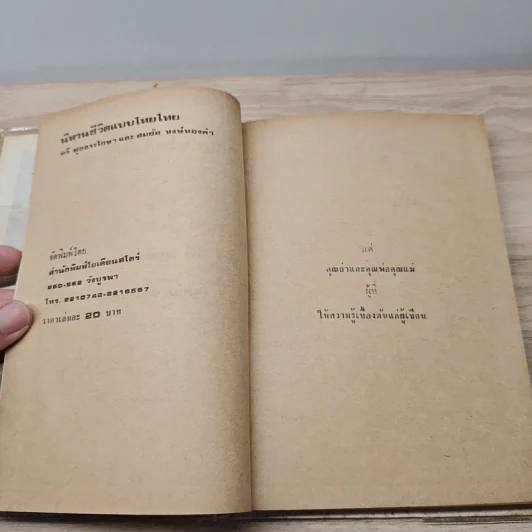 นิทานชีวิตแบบไทยไทย
ศรี พุ และ สมชัย หงษ์ทองคำ
จัดพิมพ์โดย
สำนักพิมพ์โอเดียนสโตร์
860-862 วังบูรพา
โทร. 2210742-2216567
ราคาเล่มละ 20 บาท
แด่
คุณย่าและคุณพ่อคุณแม่
ผู้ที่
ให้ความรู้เบื้องต้นแก่ผู้เขียน